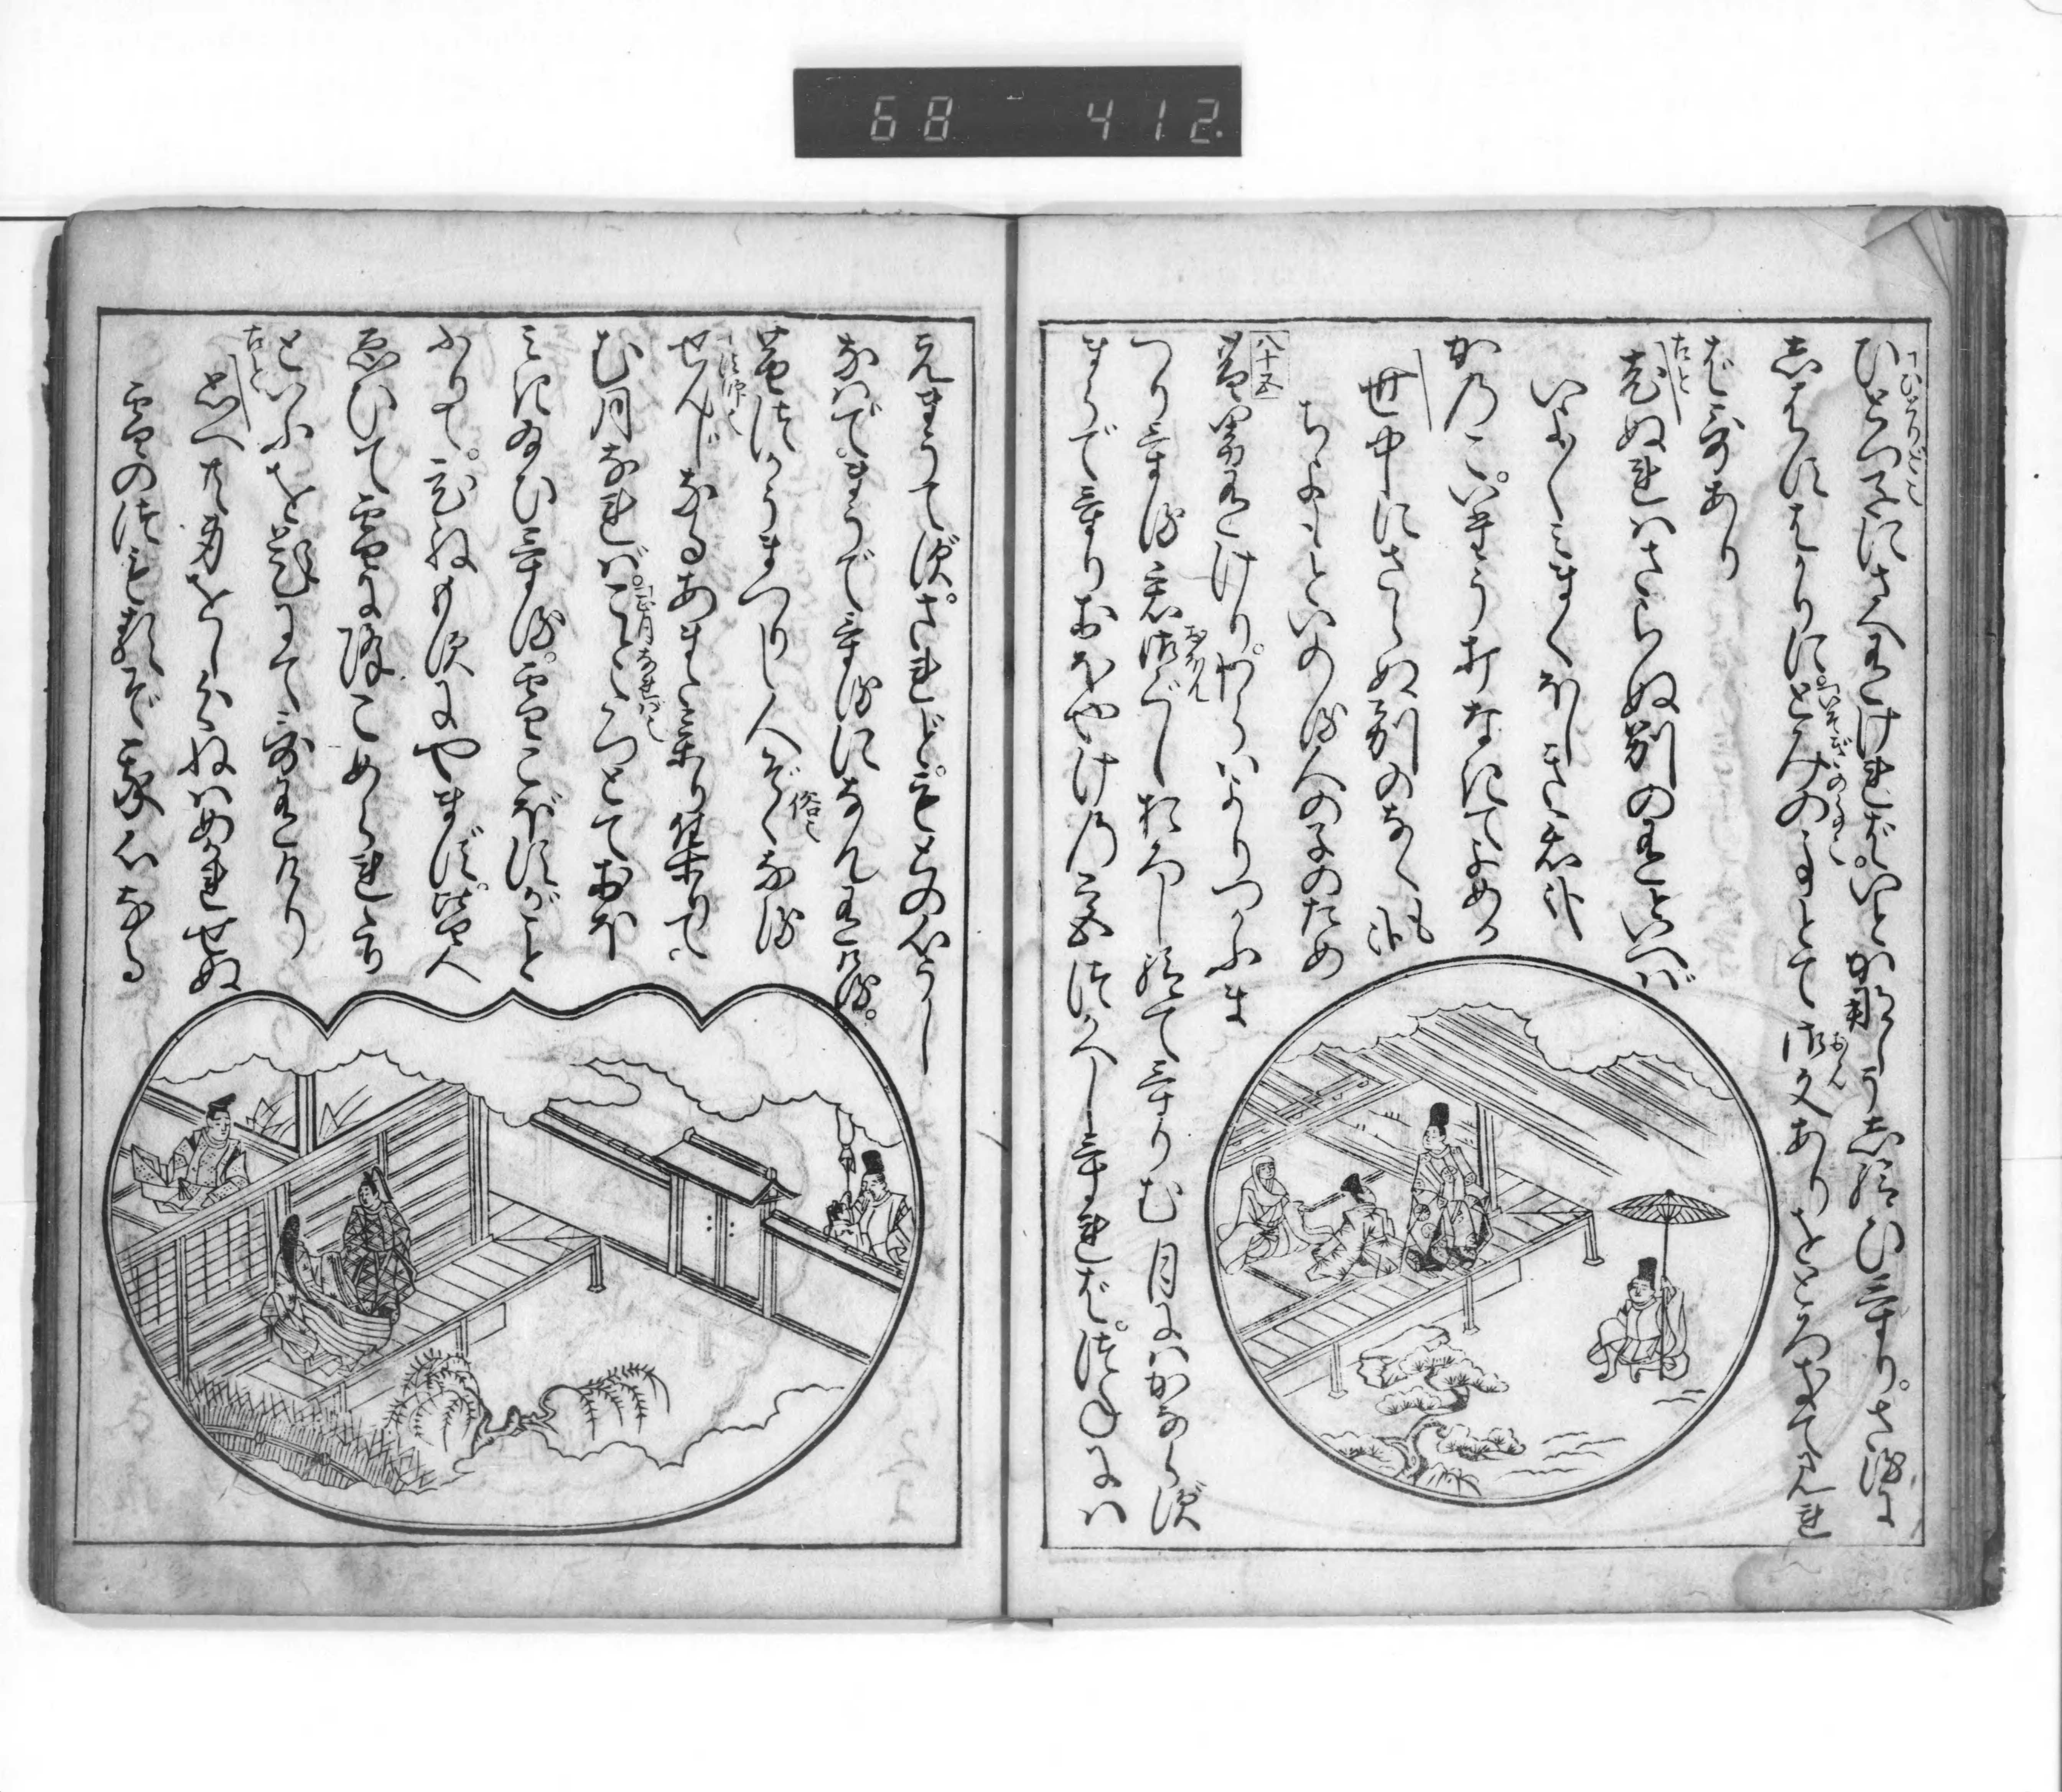 68 412
ひとつこにさへありければいとかなしうし給ひけりさるに
ひとりごと也
しはすばかりにとみのことゝて御文ありおどろきて見れ
いそぎのこと也
おん
ばうたあり
古と
老ぬれはさらぬ別のありといへば
いよ〳〵みまくほしき君哉
かの子いたううちなきてよめる
世中にさらぬ別のなくも哉
ちよもといのる人の子のため
八十五
昔男有けりわらはよりつかふま
つりける君御ぐしおろし給てけりむ月にはかならず
おん
まうでけりおほやけの宮仕へしければつねには
えまうでずされどもとの心うし
なはでまうでけるになん有ける
昔仕うまつりし人ぞくなる
俗也
ぜんじなるあまた参り集りて
法師也
む月なればことたつとておほ
正月なればと也
みきたまひけり雪こぼすがごと
ふりてひねもすにやまず皆人
ゑひて雪に降こめられたり
といふを題にて哥有けり
古と
思へ共身をしわけねはめかれせぬ
雪のつもるぞ我心なる